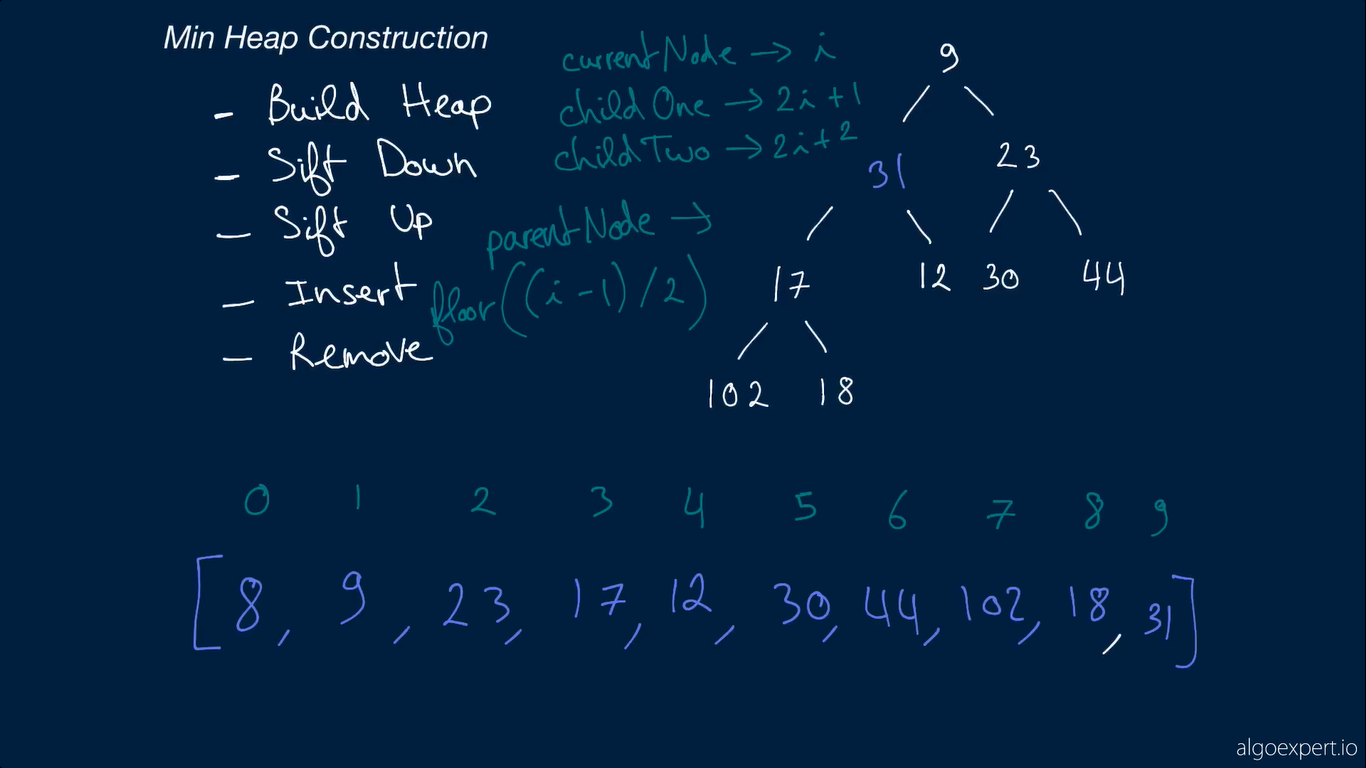 Min Heap Construction
- Build Heap
- Sift Down
- Sift Up
- Insert
- Remove
currentNode → i
childOne → 2i+1
childTwo → 2i+2
parentNode →
floor((i-1)/2)
9
31 23
17 12 30 44
102 18
0 1 2 3 4 5 6 7 8 9
[8, 9, 23, 17, 12, 30, 44, 102, 18, 31]
algoexpert.io